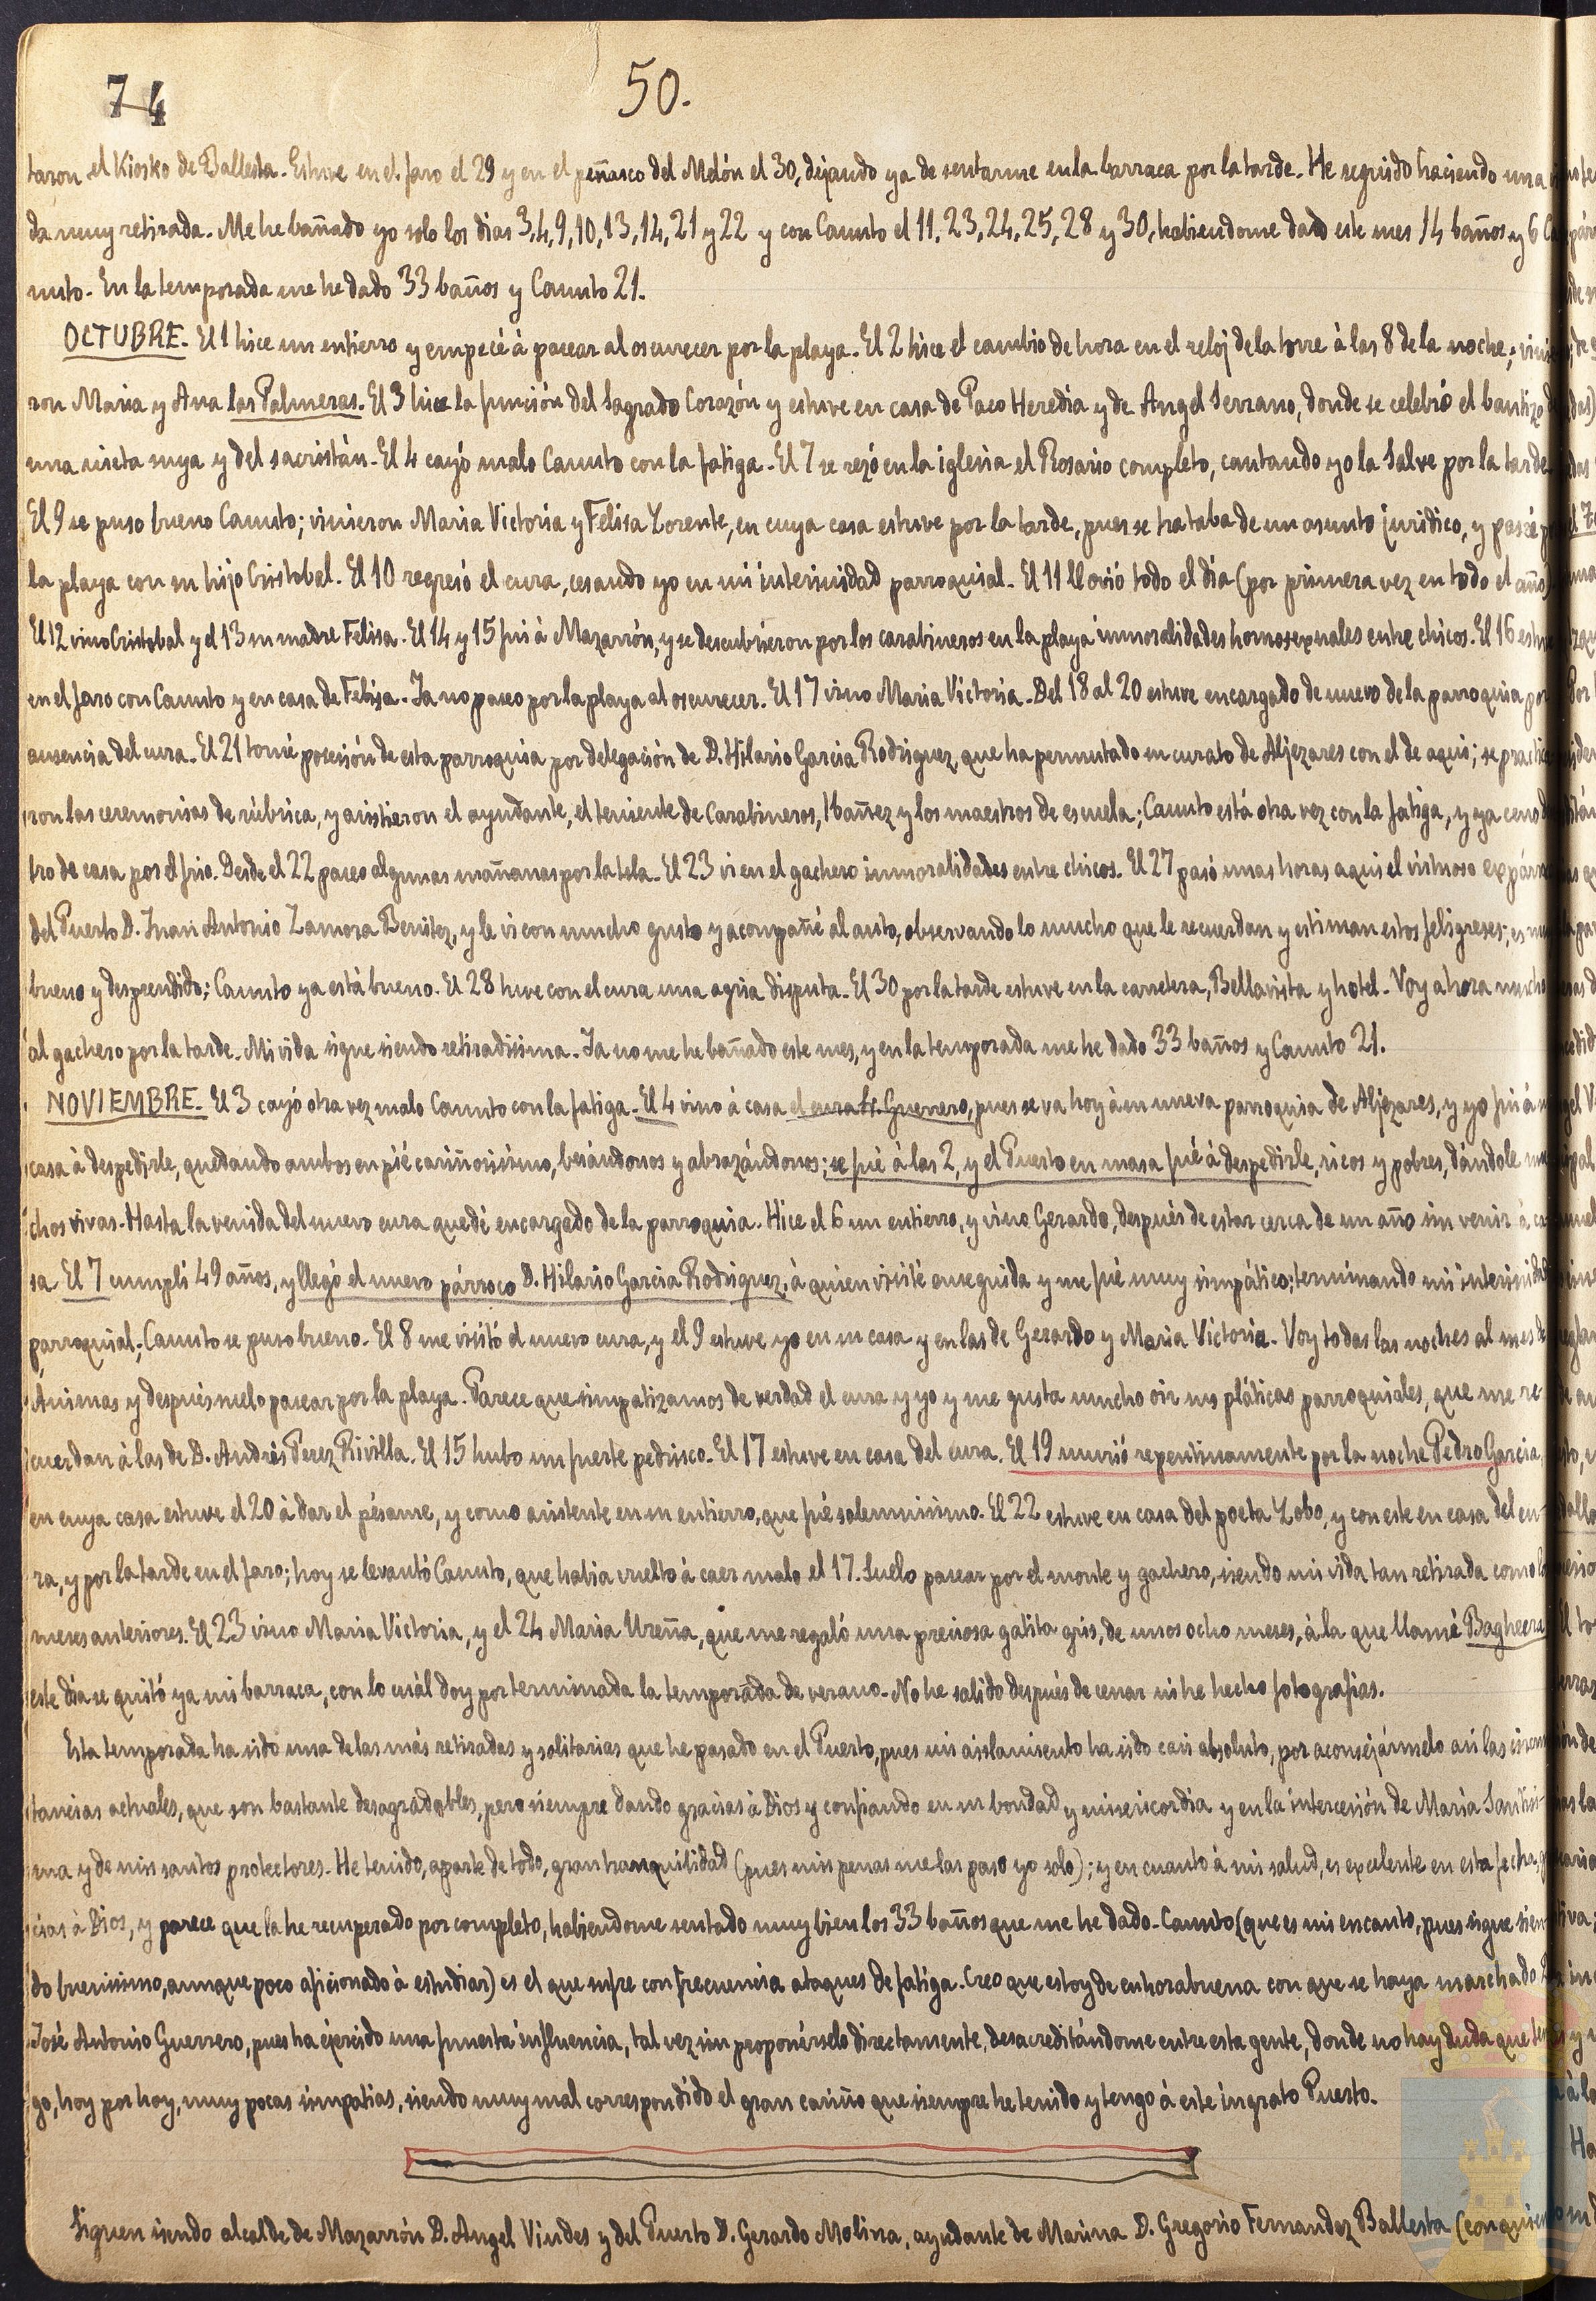 74
50.
taron el Kiosko de Ballesta. Estuve en el faro el 29 y en el peñasco del Melón el 30, dejando ya de sentarme en la barraca por la tarde. He seguido haciendo una
da muy retirada. Me he bañado yo solo los dias 3, 4, 9, 10, 13, 14, 21 y 22 y con Canuto el 11, 23, 24, 25, 28 y 30, habiendome dado este mes 14 baños y 6 Ca
nuto. En la temporada me he dado 33 baños y Canuto 21.
OCTUBRE. El 1 hice un entierro y empecé à pasear al oscurecer por la playa. El 2 hice el cambio de hora en el relój de la torre à las 8 de la noche; vinie
ron Maria y Ana las Palmeras. El 3 hice la función del Sagrado Corazón y estuve en casa de Paco Heredia y de Angel Serrano, donde se celebró el bautizo d
una nieta suya y del sacristán. El 4 cayó malo Canuto con la fatiga. El 7 se rezó en la iglesia el Rosario completo, cantando yo la Salve por la tarde
El 9 se puso bueno Canuto; vinieron Maria Victoria y Felisa Zorente, en cuya casa estuve por la tarde, pues se trataba de un asunto jurídico, y paseé p
la playa con su hijo Cristobal. El 10 regresó el cura, cesando yo en mi interinidad parroquial. El 11 llovió todo el dia (por primera vez en todo el año)
El 12 vino Cristobal y el 13 su madre Felisa. El 14 y 15 fui à Mazarrón, y se descubrieron por los carabineros en la playa inmoralidades homosexuales entre chicos. El 16 estuv
en el faro con Canuto y en casa de Felisa. Ya no paseo por la playa al oscurecer. El 17 vino Maria Victoria. Del 18 al 20 estuve encargado de nuevo de la parroquia por
ausencia del cura. El 21 tomé posesión de esta parroquia por delegación de D. Hilario Garcia Rodriguez, que ha permutado su curato de Aljezares con el de aqui; se practica
ron las ceremonias de rúbrica, y asistieron el ayudante, el teniente de Carabineros, Ibañez y los maestros de escuela; Canuto está otra vez con la fatiga, y ya ceno d
tro de casa por el frio. Desde el 22 paseo algunas mañanas por la tela. El 23 vi en el gachero inmoralidades entre chicos. El 27 pasó unas horas aqui el virtuoso expárro
del Puerto D. Juan Antonio Zamora Benitez, y le vi con mucho gusto y acompañé al auto, observando lo mucho que le recuerdan y estiman estos feligreses; es mu
bueno y desprendido; Canuto ya está bueno. El 28 tuve con el cura una agria disputa. El 30 por la tarde estuve en la carretera, Bellavista y hotel. Voy ahora mucho
al gachero por la tarde. Mi vida sigue siendo retiradisima. Ya no me he bañado este mes, y en la temporada me he dado 33 baños y Canuto 21.
NOVIEMBRE. El 3 cayó otra vez malo Canuto con la fatiga. El 4 vino à casa el cura Sr. Guerrero, pues se va hoy à su nueva parroquia de Aljezares, y yo fui à su
casa à despedirle, quedando ambos en pié cariñosisimo, besándonos y abrazándonos; se fué à las 2, y el Puerto en masa fué à despedirle, ricos y pobres, dándole mu
chos vivas. Hasta la venida del nuevo cura quedé encargado de la parroquia. Hice el 6 un entierro, y vino Gerardo, después de estar cerca de un año sin venir à ca
sa. El 7 cumplí 49 años, y llegó el nuevo párroco D. Hilario Garcia Rodriguez, à quien visité enseguida y me fué muy simpático; terminando mi interinidad
parroquial; Canuto se puso bueno. El 8 me visitó el nuevo cura, y el 9 estuve yo en su casa y en las de Gerardo y Maria Victoria. Voy todas las noches al mes de
Ánimas y después suelo pasear por la playa. Parece que simpatizamos de verdad el cura y yo y me gusta mucho oir sus pláticas parroquiales, que me re
cuerdan à las de D. Andrés Perez Rivilla. El 15 hubo un fuerte pedrisco. El 17 estuve en casa del cura. El 19 murió repentinamente por la noche Pedro Garcia,
en cuya casa estuve el 20 à dar el pésame, y como asistente en su entierro, que fué solemnisimo. El 22 estuve en casa del poeta Lobo, y con este en casa del cu-
ra, y por la tarde en el faro; hoy se levantó Canuto, que habia vuelto à caer malo el 17. Suelo pasear por el monte y gachero, siendo mi vida tan retirada como lo
meses anteriores. El 23 vino Maria Victoria, y el 24 Maria Ureña, que me regaló una preciosa gatita gris, de unos ocho meses, à la que llamé Bagheera
este dia se quitó ya mi barraca, con lo cuál doy por terminada la temporada de verano. No he salido después de cenar ni he hecho fotografias.
Esta temporada ha sido una de las más retiradas y solitarias que he pasado en el Puerto, pues mi aislamiento ha sido casi absoluto, por aconsejármelo asi las circuns
tancias actuales, que son bastante desagradables, pero siempre dando gracias à Dios y confiando en su bondad y misericordia y en la intercesión de Maria Santisi-
ma y de mis santos protectores. He tenido, aparte de todo, gran tranquilidad (pues mis penas me las paso yo solo); y en cuanto à mi salud, es excelente en esta fecha, gra
cias à Dios, y parece que la he recuperado por completo, habiendome sentado muy bien los 33 baños que me he dado. Canuto (que es mi encanto, pues sigue sien
do buenisimo, aunque poco aficionado à estudiar) es el que sufre con frecuencia ataques de fatiga. Creo que estoy de enhorabuena con que se haya marchado D.
José Antonio Guerrero, pues ha ejercido una funesta influencia, tal vez sin proponérselo directamente, desacreditándome entre esta gente, donde no hay duda que ten
go, hoy por hoy, muy pocas simpatias, siendo muy mal correspondido el gran cariño que siempre he tenido y tengo à este ingrato Puerto.
Siguen siendo alcalde de Mazarrón D. Angel Viudes y del Puerto D. Gerardo Molina, ayudante de Marina D. Gregorio Fernandez Ballesta (con quien